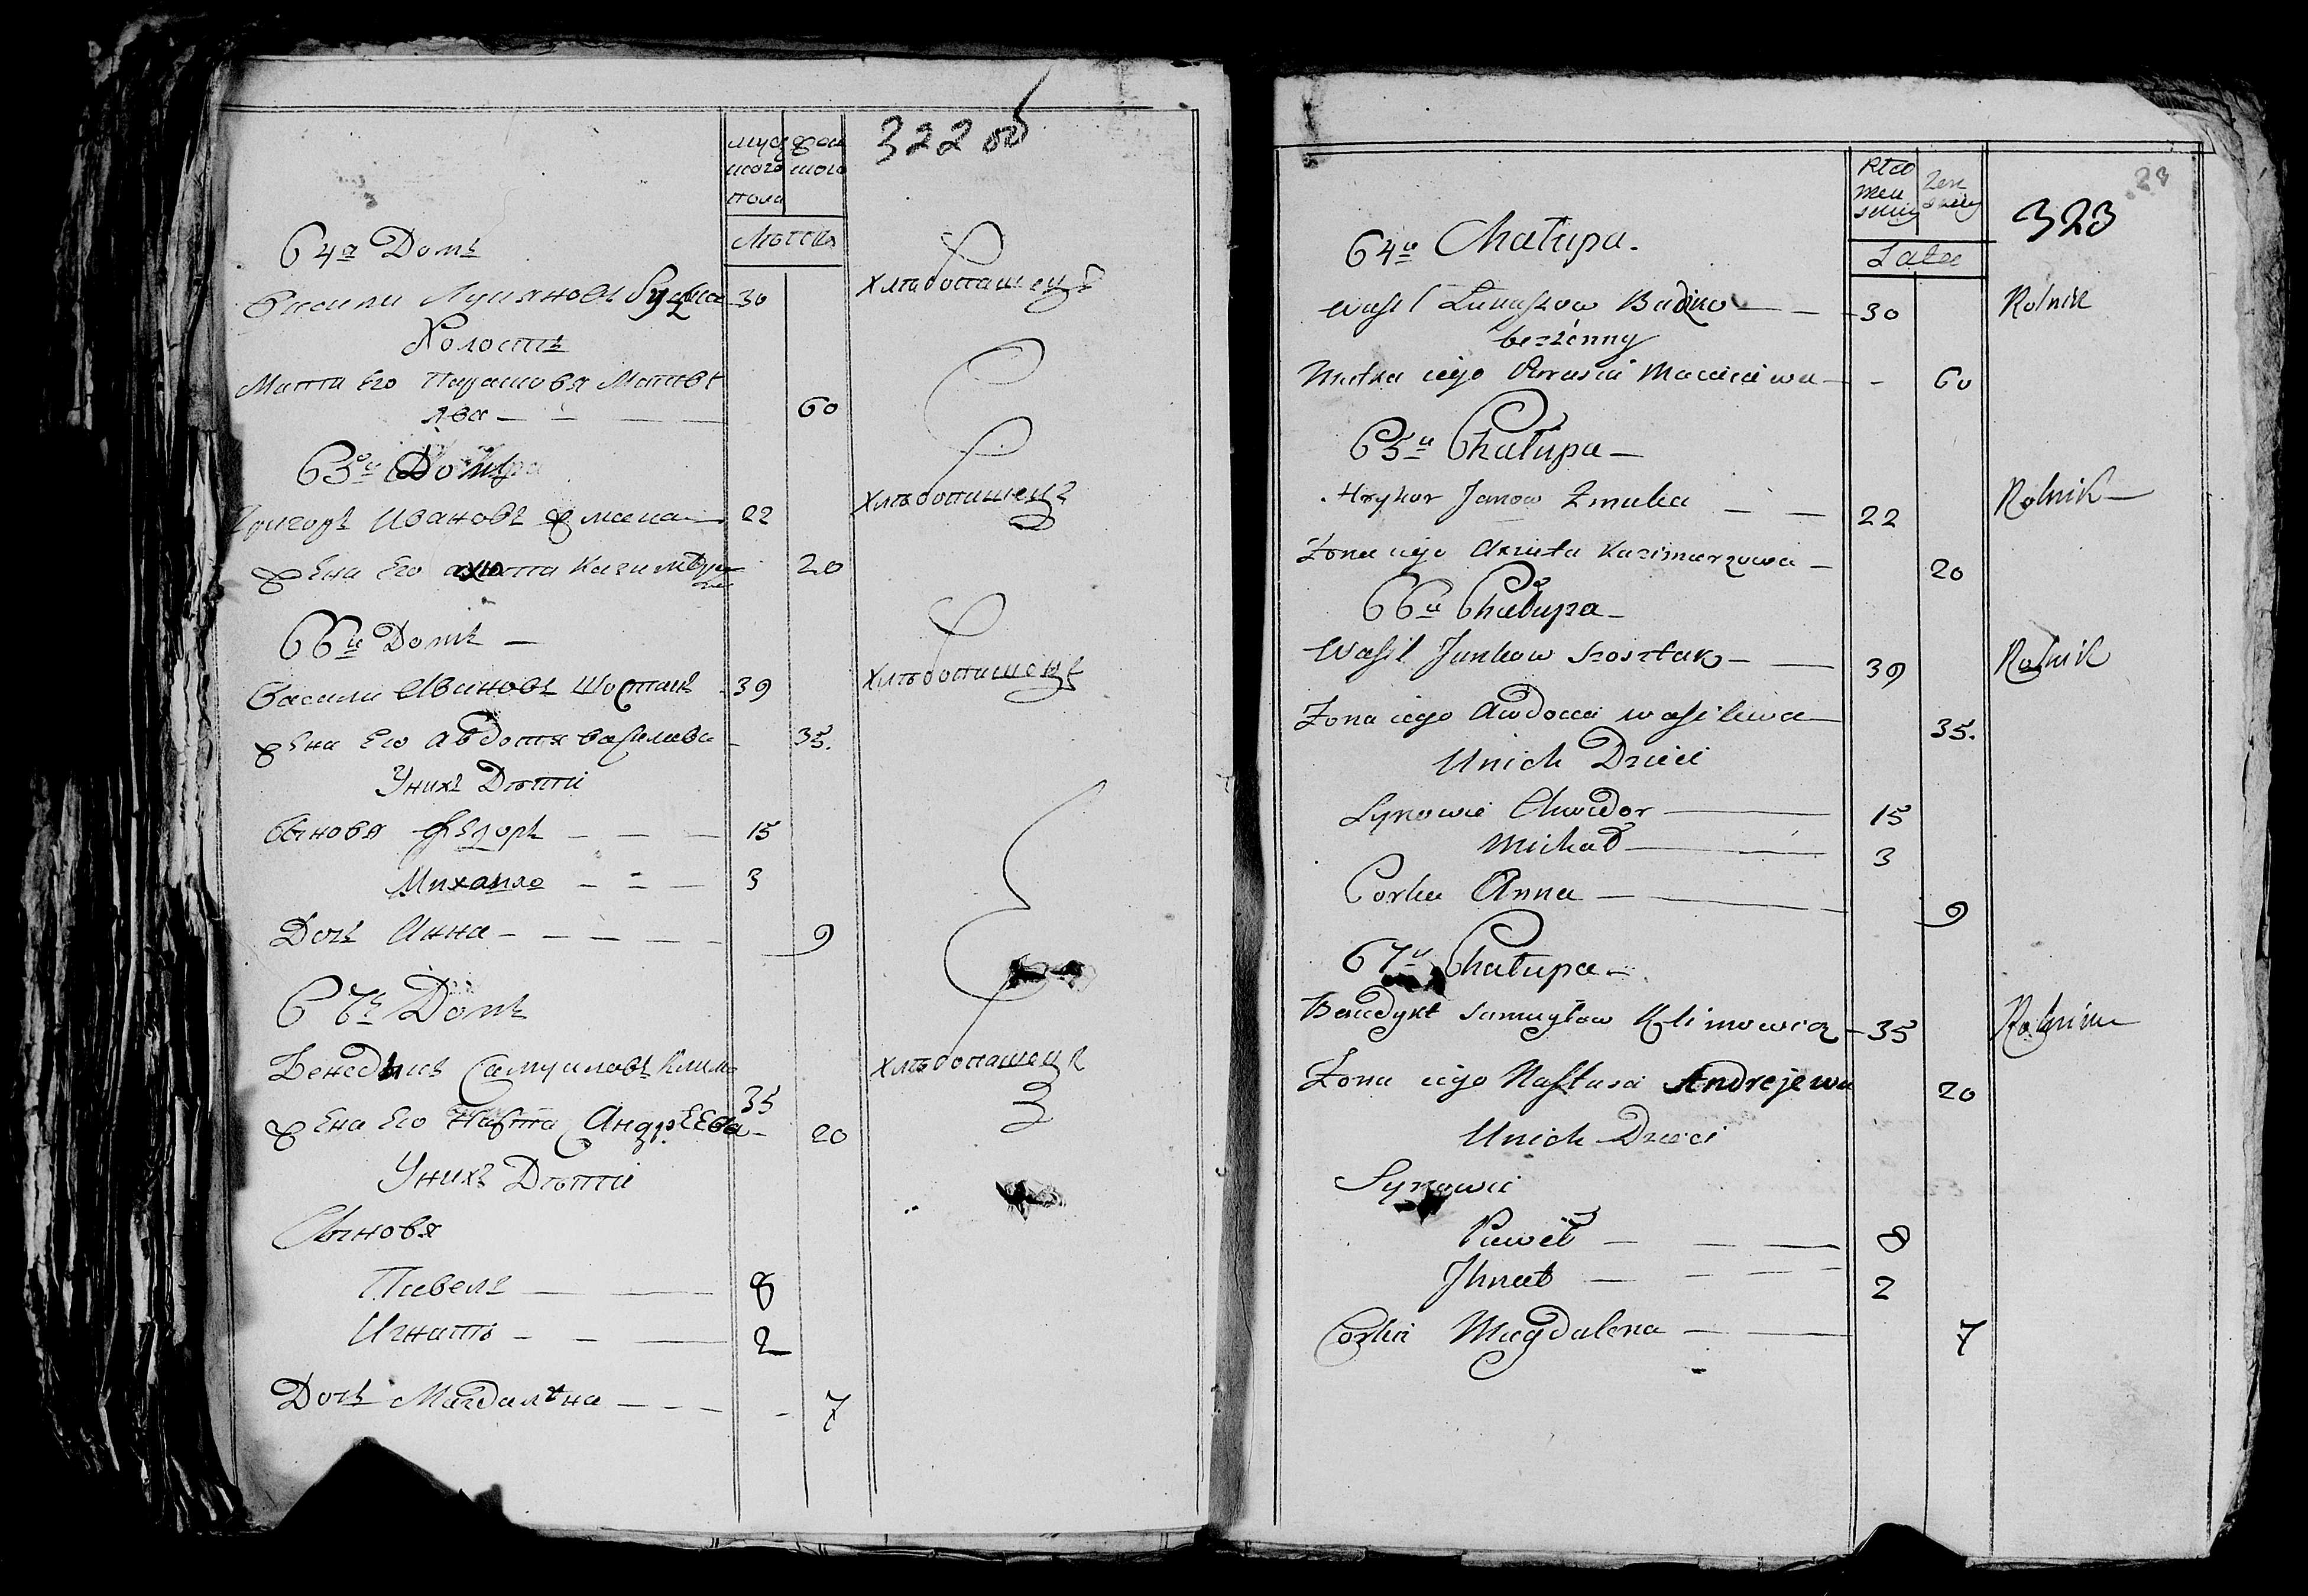 322 об
муж
ского
пола
жен
ского
Лѣтта
64а Домъ
Васили Лукяновъ Будзко 30 Хлѣбопашецъ
Холостъ
Мати Его Парасковя Матвѣ
ява — 60
65а Домъ
Григоръ Ивановъ Жмака 22 Хлѣбопашецъ
Жена Его Аxюта Казимѣр 20
66а Домъ —
Васили Ивановъ Шостакъ 39 Хлѣбопашецъ
Жена Его Авдотя Василева — 35.
Унихъ Дѣтти
Сыновя Федоръ — — — 15
Михаило — — — 3
Дочь Анна — — — — — 9
67ъ Домъ
Бенедыкъ Самуиловъ Клим 35 Хлѣбопашецъ
Жена Его Наста Андреева — 20
Унихъ Дѣтти
Сыновя
Павелъ — — 8
Игнатъ — — — 2
Дочь Магдалѣна — — — 7
28
323
Płco
Men
skiey
Zen
skiey
Latta
64a Chałupa.
Wasil Łukaszow Budzko — — 30 Rolnik
bezżenny
Matka iego Parasia Macieiewa — - 60
65a Chałupa —
Hryhor Janow Zmaka — — 22 Rolnik —
Zona iego Axiuta Kazimarzowa — 20
66a Chałupa —
Wasil Jankow Szosztak — — 39 Rolnik
Zona iego Awdocia Wasilewa — 35.
Unich Dzieci
Synowie Chwiedor — 15
Michał — 3
Corka Anna — — 9
67a Chałupa —
Benedykt Samuyłow Klimowicz — 35 Rolnik
Zona iego Nastazia Andrejewa 20
Unich Dzieci
Synowie
Paweł — — — 8
Jhnat — — — 2
Corka Magdalena — — 7